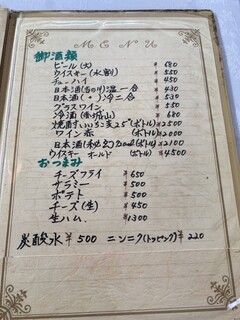 MENU
御酒類
ビール(大) ¥680
ウイスキー(水割) ¥550
チューハイ ¥450
日本酒(舌の川)温一合 ¥430
日本酒(〃)冷二合 ¥530
グラスワイン ¥500
冷酒 ¥680
焼酎いいちこ25°(ボトル) ¥2500
ワイン赤 (ボトル) ¥2000
日本酒(ボトル) ¥2100
ウイスキー オールド (ボトル) ¥4500
おつまみ
チーズフライ ¥650
サラミー ¥500
ポテト ¥500
チーズ(生) ¥450
生ハム ¥1300
炭酸水 ¥500 ニンニク(トッピング) ¥220